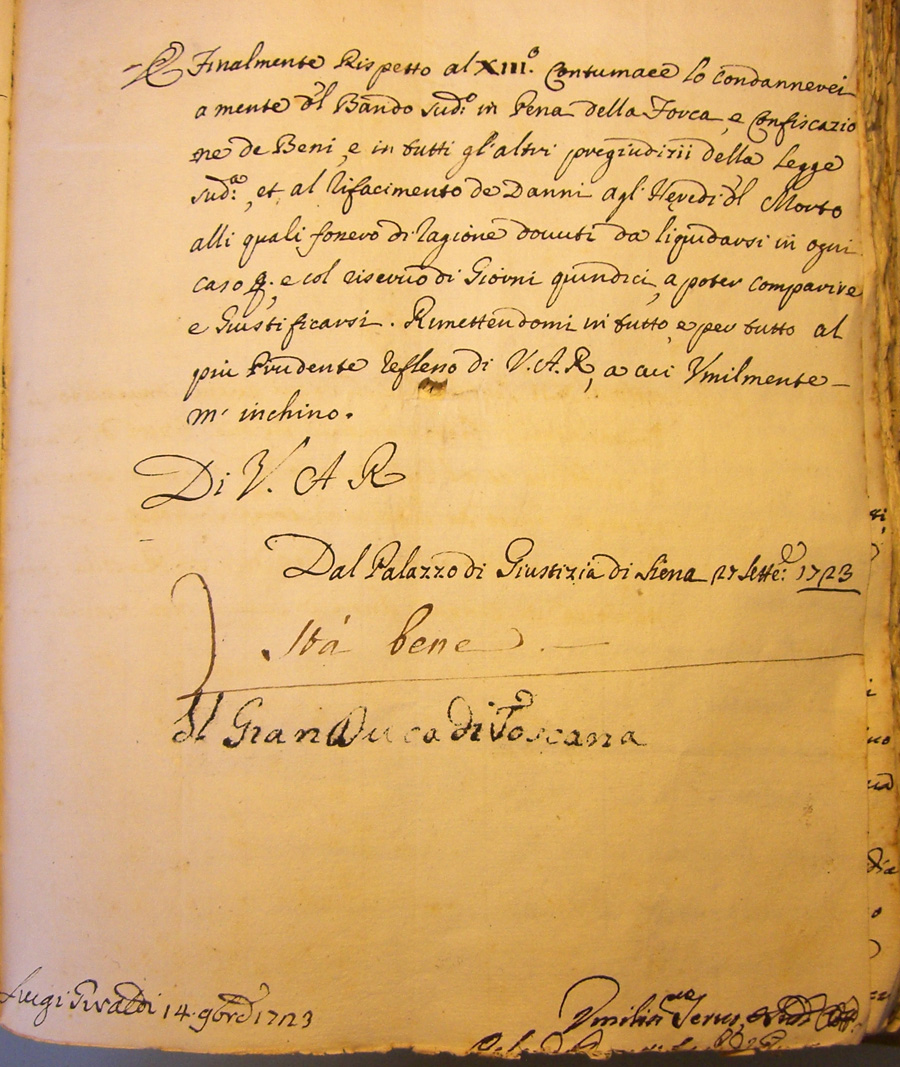 E Finalmente Rispetto al XIII.º Contumace lo Condannerei
a mente dl Bando sud.º in Pena della Forca, e Confiscazio
ne de Beni, e in tutti gl'altri pregiudizii della Legge
sud.ª, et al rifacimento de Danni agl'Heredi dl Morto
alli quali fossero di ragione dovuti da liquidarsi in ogni
caso &. e col riservo di Giorni quindici, a poter comparire
e Giustificarsi. Rimettendomi in tutto, e per tutto al
più Prudente reflesso di V.A.R, a cui Vmilmente
m'inchino.
Di V. A R
Dal Palazzo di Giustizia di Siena 27 Sette: 1723
Stà bene.
Il Gran Duca di Toscana
Luigi 14. 9bre 1723
Vmiliss.mo Servo,